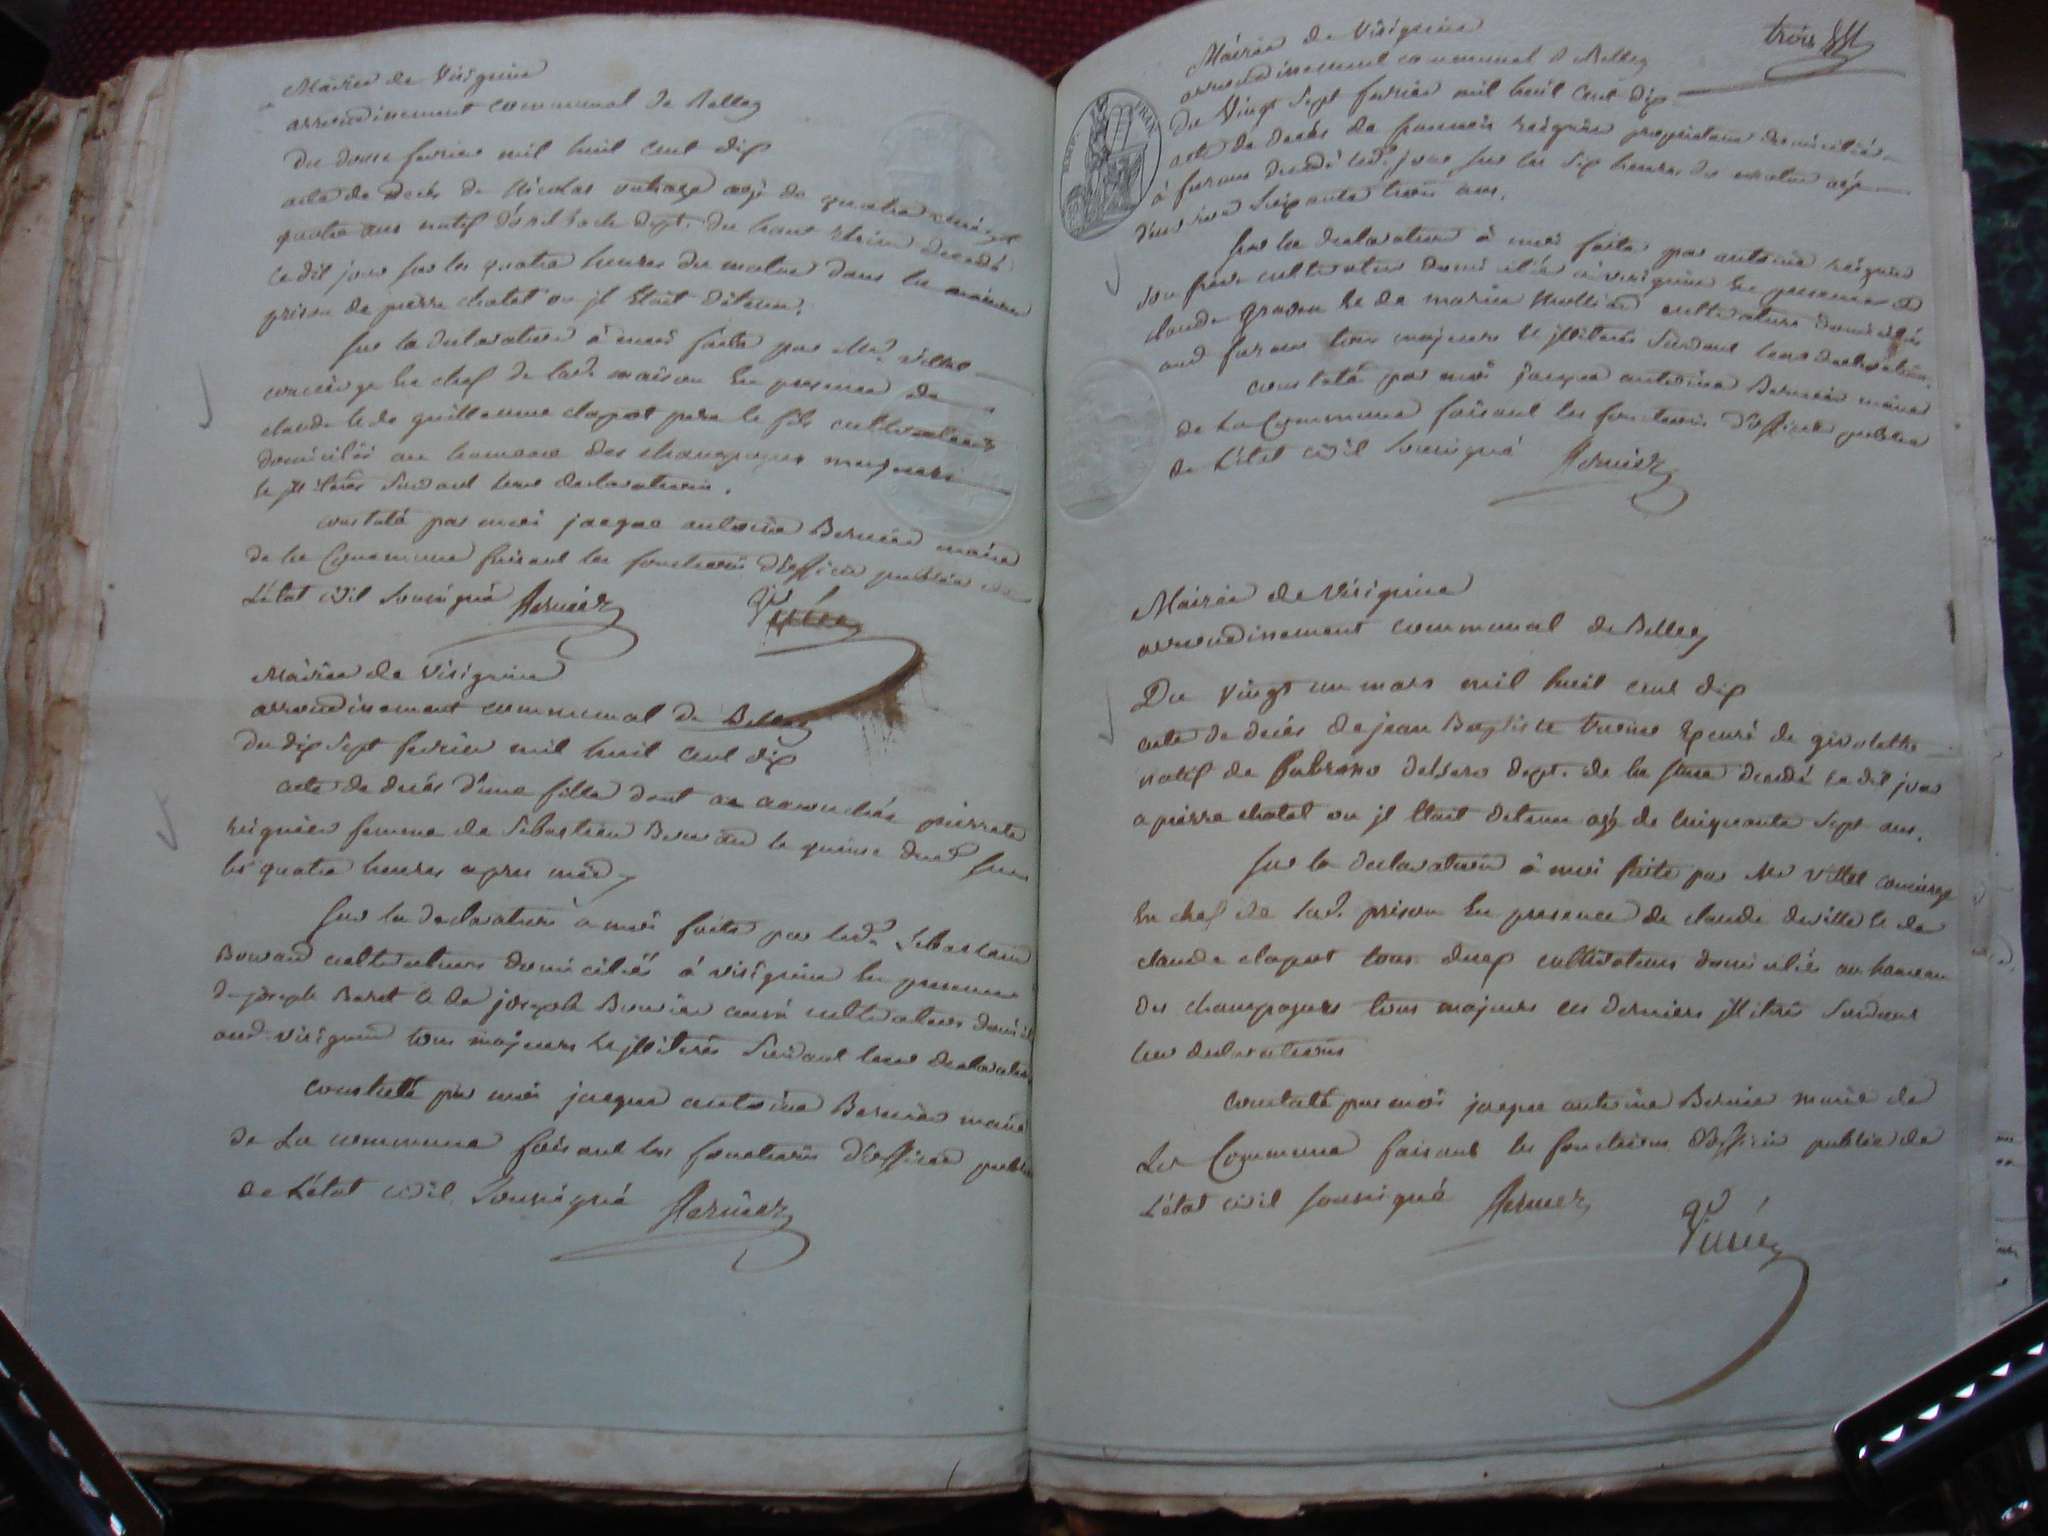 Mairie de Virignin
arrondissement communal de Belley
Du douze fevrier mil huit cent dix
acte de decès de Nicolas agé de quatre vingt
quatre ans natif dept. du haut Rhin decedé
ce dit jour sur les quatre heures du matin dans la maison
prison de pierre chatel ou jl etoit détenu.
Sur la declaration à moi faite par Mr. Villet
concierge en chef de lad. maison en presence de
claude et de guillaume clapot pere et fils cultivateurs
domiciliés au hameau des champagnes majeurs
et jlliterés suivant leur declaration.
constaté par moi jacque antoine Bernier maire
de la Commune faisant les fonctions d'officier public de
L'état civil soussigné Bernier Villet
Mairie de Virignin
arrondissement communal de Belley
du dix sept fevrier mil huit cent dix
acte de decès d'une fille dont a accouchée pierrete
reignier femme de Sebastien le quinze dud. sur
les quatre heures apres midy
Sur la declaration a moi faite par led. Sebastien
cultivateurs domiciliés à virignin en presence
de joseph Baret et de joseph cultivateurs domicil
aud. virignin tous majeurs et jlliterés suivant leur declaration
constaté par moi jacque antoine Bernier maire
de La commune faisant les fonctions d'officier public
de L'état civil soussigné Bernier
trois
Mairie de Virignin
arrondissement communal d Belley
du Vingt Sept fevrier mil huit cent dix
acte de decès de francois reignier proprietaire domicilié
à fureau decedé led. jour sur les six heures du matin agé
d'environ soixante trois ans.
Sur la declaration à moi faite par antoine reignier
son frere cultivateur domicilié à virignin en presence de
claude et de marin cultivateurs domiciliés
aud fureau tous majeurs et jlliterés suivant leur declaration.
constaté par moi jacque antoine Bernier maire
de La Commune faisant les fonctions d'officier public
de L'état civil soussigné Bernier
Mairie de Virignin
arrondissement communal de Belley
Du vingt un mars mil huit cent dix
acte de decès de jean Baptiste de
natif de dept. de la decedé ce dit jour
a pierre chatel ou jl etoit detenu agé de cinquante sept ans.
Sur la declaration à moi faite par Mr Villet concierge
en chef de lad. prison en presence de claude et de
claude clapot tous deux cultivateurs domiciliés au hameau
des champagnes tous majeurs ces derniers jlliterés suivant
leur declaration
constaté par moi jacque antoine Bernier maire de
La Commune faisant les fonctions d'officier public de
L'état civil soussigné Bernier Villet